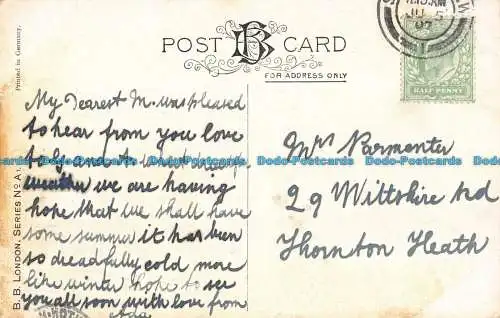 POST CARD
B B
FOR ADDRESS ONLY
Printed in Germany.
B. B. LONDON. SERIES No A1
11.15 AM
JU 5
07
HALF PENNY
My Dearest M. was pleased
to hear from you love
to
weather we are having
hope that we shall have
some summer it has been
so dreadfully cold more
like winter hope to see
you all soon with love from
Ada
Mrs Parmenter
29 Wiltshire Rd
Thornton Heath
Bodo-Postcards Bodo-Postcards Bodo-Postcards Bodo-Postcards